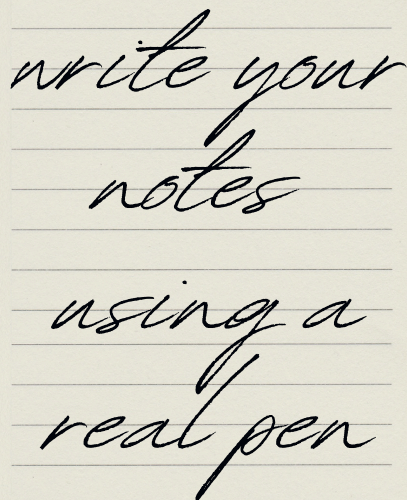 write your
notes
using a
real pen